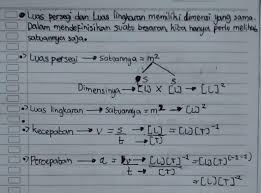 Luas persegi dan Luas lingkaran memiliki dimensi yang sama.
Dalam mendefinisikan suatu besaran, kita hanya perlu melihat
satuannya saja.
•> Luas persegi → satuannya = m²
s s
Dimensinya → [L] x [L] → [L]²
•> Luas lingkaran → satuannya = m² → [L]²
•> Kecepatan → v = s/t → [L]/[T] → [L][T]⁻¹
•> Percepatan → a = v/t → [L][T]⁻¹/[T] = [L][T]⁽⁻¹⁻¹⁾
= [L][T]⁻²